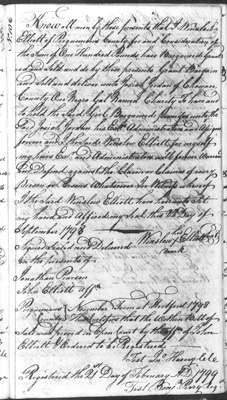 Know all men by these presents that I Winslow
Elliott of Pequimons County for and Consideration of
the Sum of One Hundred Pounds have Bargained
and Sold and by these presents Grant Bargain
and Sell and deliver unto Josiah Jordan of Chowan
County One Negro Gal Named Charity to have and
to hold the said Girl Bargained unto the
Said Josiah Jordan his Administrators and Assigns
forever and I the said Winslow Elliott for myself
my heirs and Administrators will forever Warrant
and Defend against the Claim or Claims of any
Person or Persons Whatsoever In Witness whereof
I the Said Winslow Elliott have hereunto Set
my hand and Affixed my Seal this Day of
September 1798
Winslow his Elliott
mark
Signed Sealed and Delivered
In the presents of
Jonathan Pearson
John Elliott
November Term 1798
that the within Bill of
Sale was proved in Open Court by the of John
Elliott & Ordered to be Registered
Test Harvey
Registered the 21st Day of February AD 1799
Test